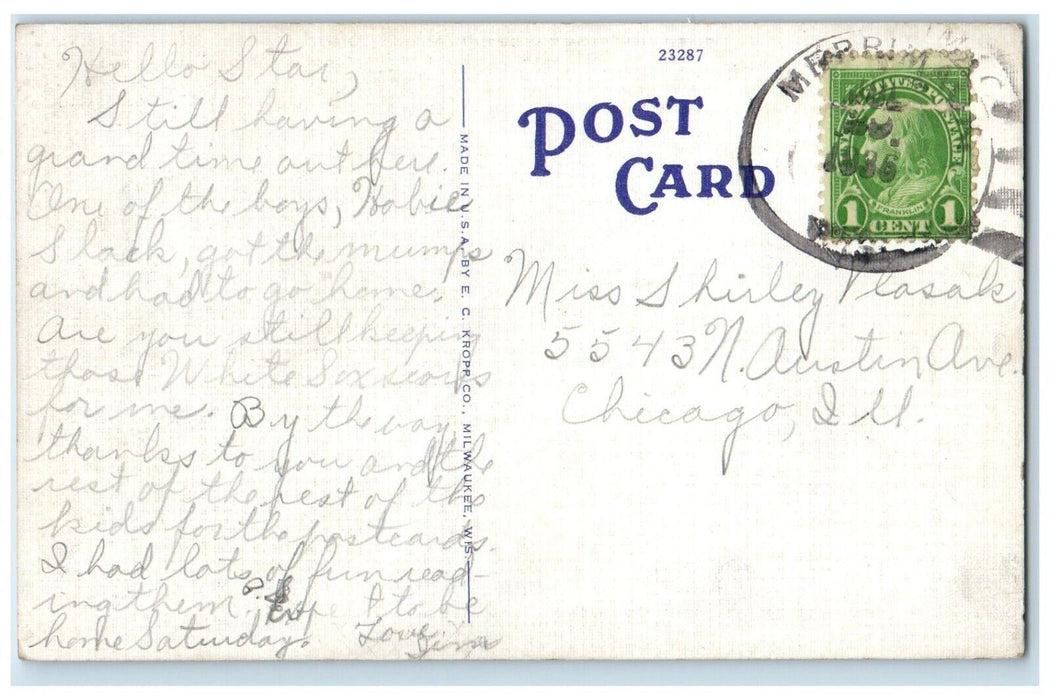 Hello Star,
Still having a
grand time out here.
One of the boys, Hobie
Slack, got the mumps
and had to go home.
Are you still keeping
those White Sox scores
for me. By the way
thanks to you and the
rest of the rest of the
kids for the postcards.
I had lots of fun read-
ing them. I to be
home Saturday. Love
Jim
MADE IN U.S.A. BY E. C. KROPP CO., MILWAUKEE, WIS.
23287
POST
CARD
1936
UNITED STATES POSTAGE
FRANKLIN
1 CENT 1
Miss Shirley
5543 N. Austin Ave.
Chicago, Ill.